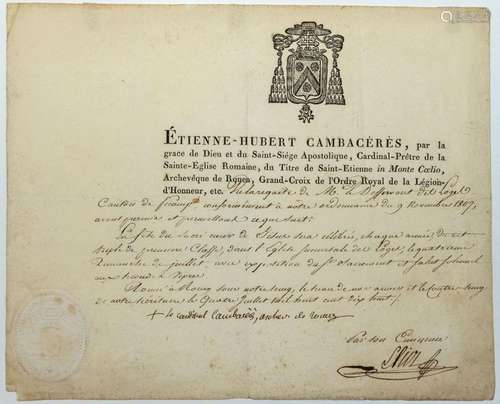 ÉTIENNE-HUBERT CAMBACÉRÈS, par la
grace de Dieu et du Saint-Siége Apostolique, Cardinal-Prêtre de la
Sainte-Eglise Romaine, du Titre de Saint-Etienne in Monte Cœlio,
Archevêque de Rouen, Grand-Croix de l'Ordre Royal de la Légion-
d'Honneur, etc. de M. le
Canton de conformément à notre ordonnance du 9 Novembre 1807,
avons permis et permettons ce qui suit:
La fête du Sacré cœur de Jésus sera célébrée, chaque année,
de première Classe, dans l'Eglise le quatrième
Dimanche de juillet, avec exposition du St Sacrement et salut solennel
Donné à Rouen sous notre seing, le sceau de nos armes et le Contre-seing
de notre Secrétaire le Quatre juillet Mil huit cent dix huit
+ le cardinal Cambacérès, archev. de rouen
Par son Eminence